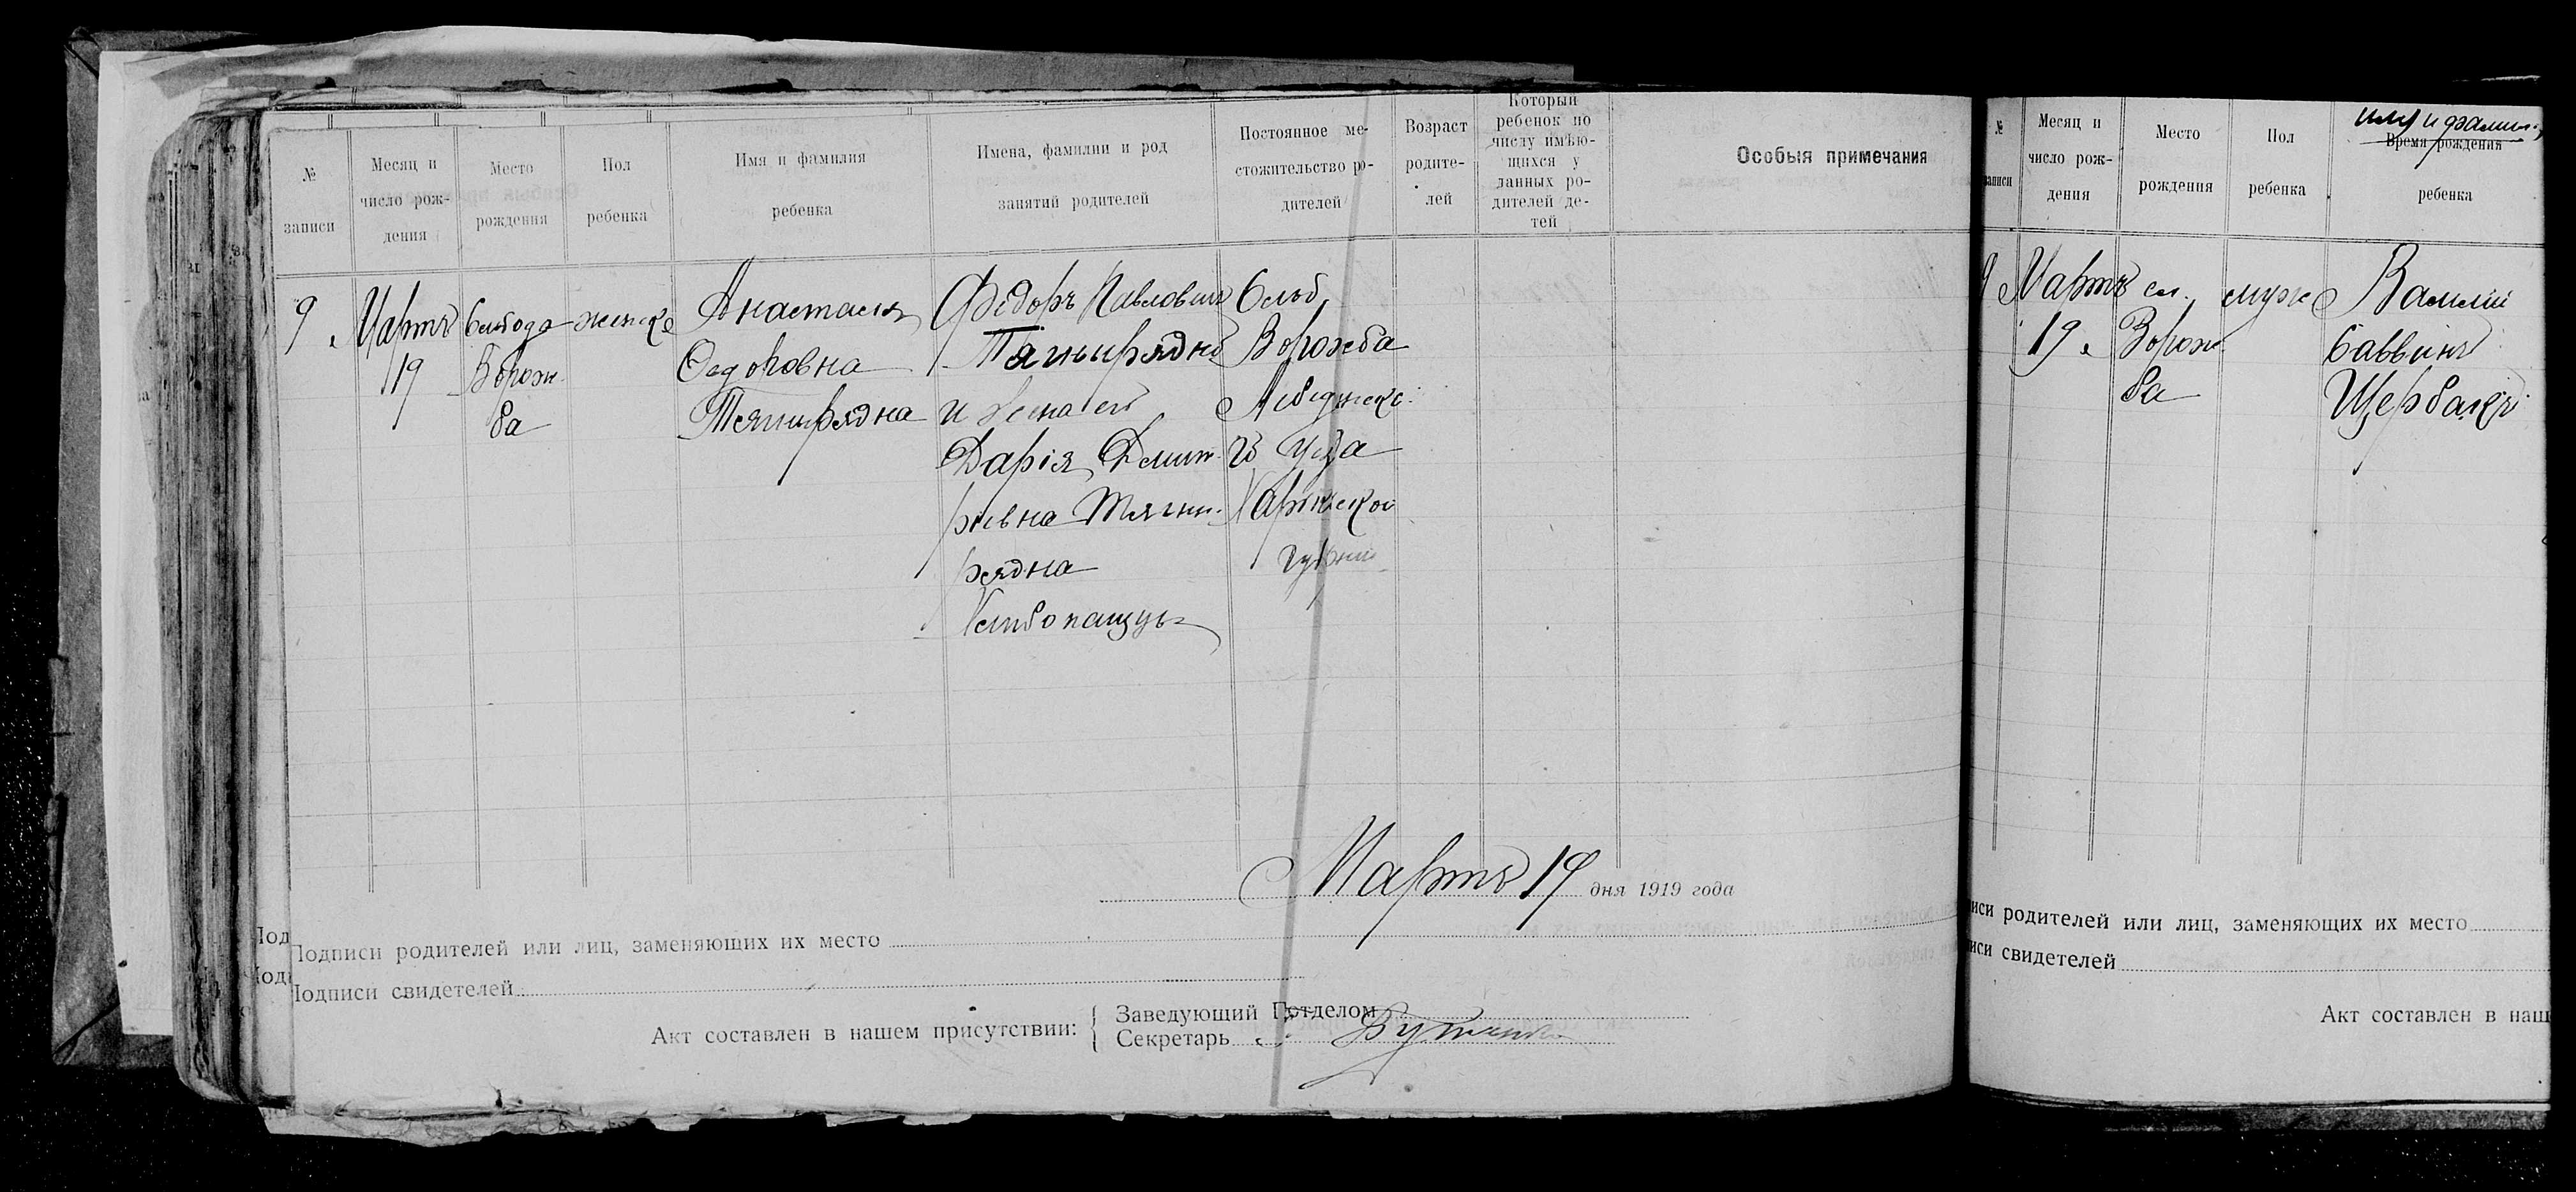 № записи
Месяц и число рождения
Место рождения
Пол ребенка
Имя и фамилия ребенка
Имена, фамилии и род занятий родителей
Постоянное местожительство родителей
Возраст родителей
Который ребенок по числу имѣющихся у данных родителей детей
Особыя примечания
9
Мартъ
19
Слобода
Ворож
ба
женск
Анастасія
Федоровна
Тягнирядна
Федоръ Павловичъ
Тягнирядно
и жена его
Дарія Дмит
ріевна Тягни
рядна
Хлебопашцы
Слоб.
Ворожба
Лебединска
го уезда
Харьковской
губернии
Мартъ 19 дня 1919 года
Подписи родителей или лиц, заменяющих их место
Подписи свидетелей
Акт составлен в нашем присутствии:
Заведующий Потделом
Секретарь
№
записи
Месяц и
число рож-
дения
Место
рождения
Пол
ребенка
имя и фамил.
Время рождения
ребенка
9
Мартъ
19
сл.
Ворож
ба
муж
Василій
Саввинъ
Щербакъ
писи родителей или лиц, заменяющих их место
писи свидетелей
Акт составлен в наш